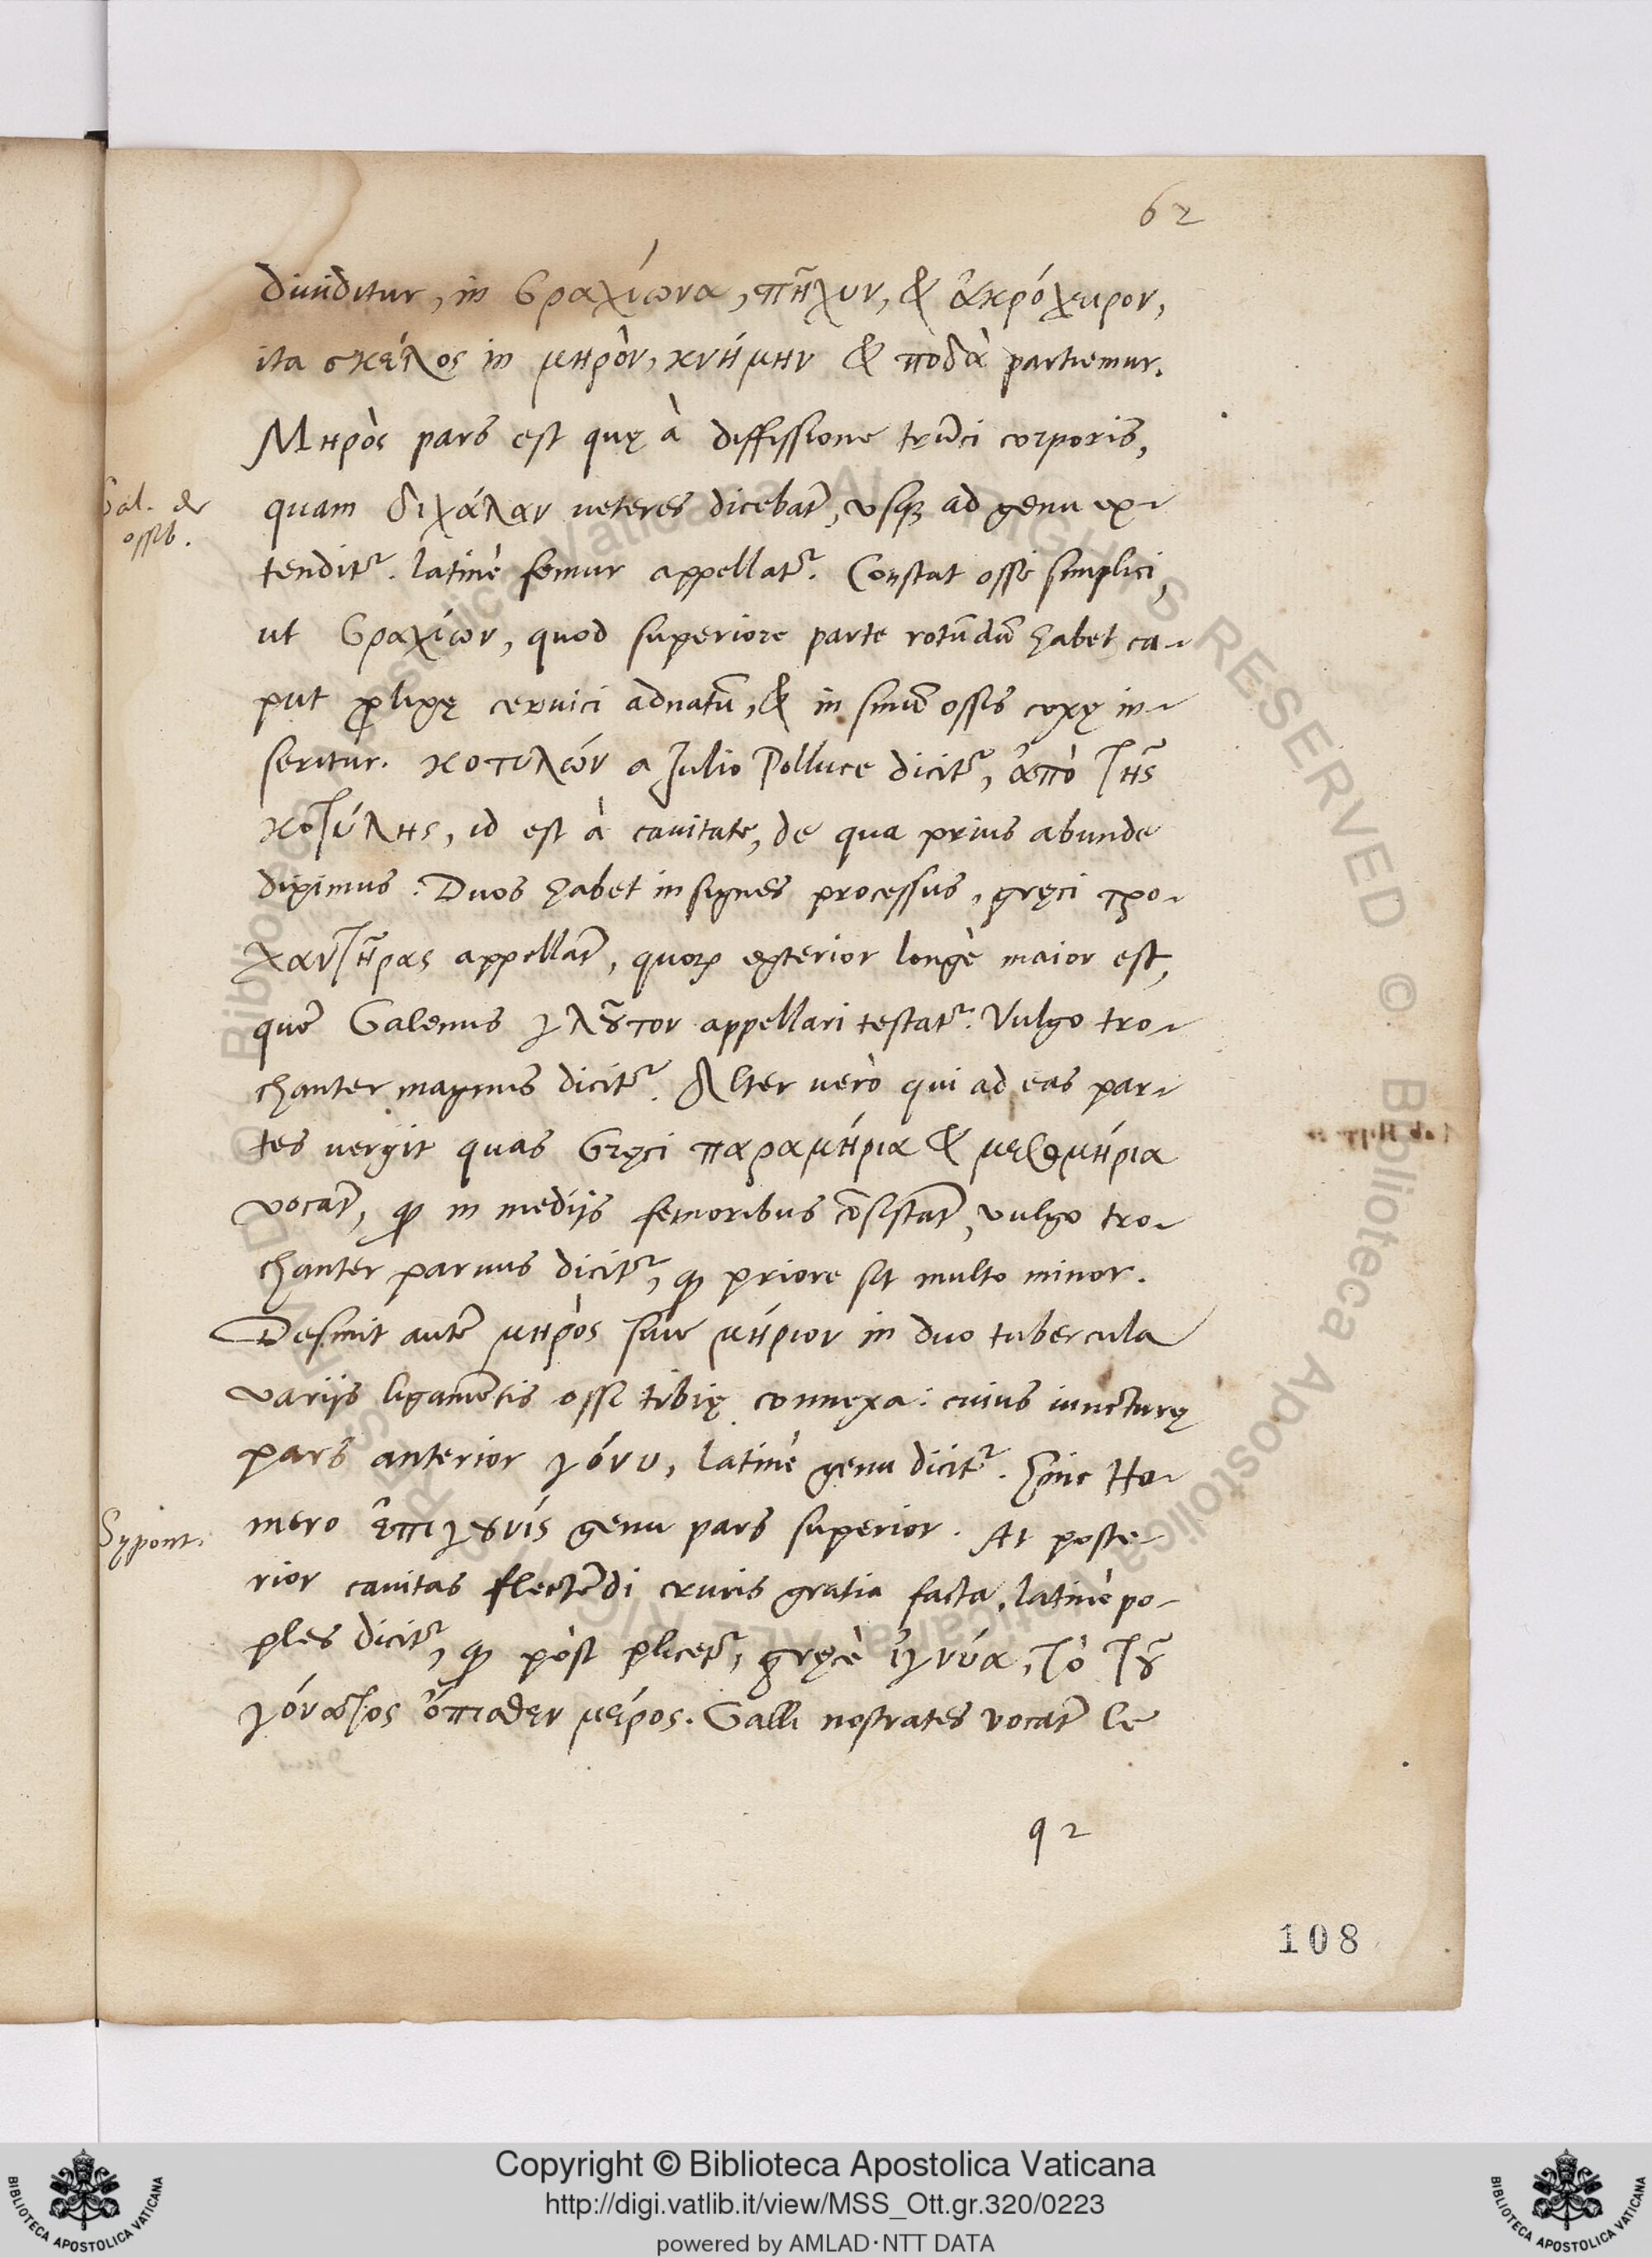 62
diuiditur, in βραχίωνα, πῆχυν, & ἀκρόχειρον,
ita σκέλος in μηρὸν, κνήμην & ποδὰ partiemur.
Μηρὸς pars est quę à diffissione trūci corporis,
Gal. de
ossib.
quam διχάλαν ueteres dicebāt, vsq; ad genu ex-
tenditr̃. latinè femur appellatr̃. Constat osse simplici,
ut βραχίων, quod superiore parte rotūdū habet ca-
put ꝓlixę ceruici adnatū, & in sinū ossis coxę in-
seritur. κοτυλών a Julio Polluce dicitr̃, ἀπὸ τῆς
κοτύλης, id est à cauitate, de qua prius abunde
diximus. Duos habet insignes processus, gręci τρο-
χαντῆρας appellāt, quoꝝ exterior longè maior est,
quē Galenus γλοῦτον appellari testatr̃. Vulgo tro-
chanter magnus dicitr̃. Alter uerò qui ad eas par-
tes uergit quas Gręci παραμήρια & μεσομήρια
vocāt, ꝙ in medijs femoribus cōsistāt, vulgo tro-
chanter paruus dicitr̃, ꝙ priore sit multo minor.
Desinit autē μηρὸς siue μήριον in duo tubercula
varijs ligamētis ossi tibię connexa: cuius iuncturę
pars anterior γόνυ, latinè genu dicitr̃. Hinc Ho-
Sypont.
mero ἐπιγουνίς genu pars superior. At poste-
rior cauitas flectēdi cruris gratia facta, latinè po-
ples dicitr̃, ꝙ pòst plicetr̃, gręcè ἰγνύα, τὸ τοῦ
γόνατος ὄπισθεν μέρος. Galli nostrates vocāt le
q 2
108
Copyright © Biblioteca Apostolica Vaticana
http://digi.vatlib.it/view/MSS_Ott.gr.320/0223
powered by AMLAD·NTT DATA
BIBLIOTECA APOSTOLICA VATICANA
BIBLIOTECA APOSTOLICA VATICANA